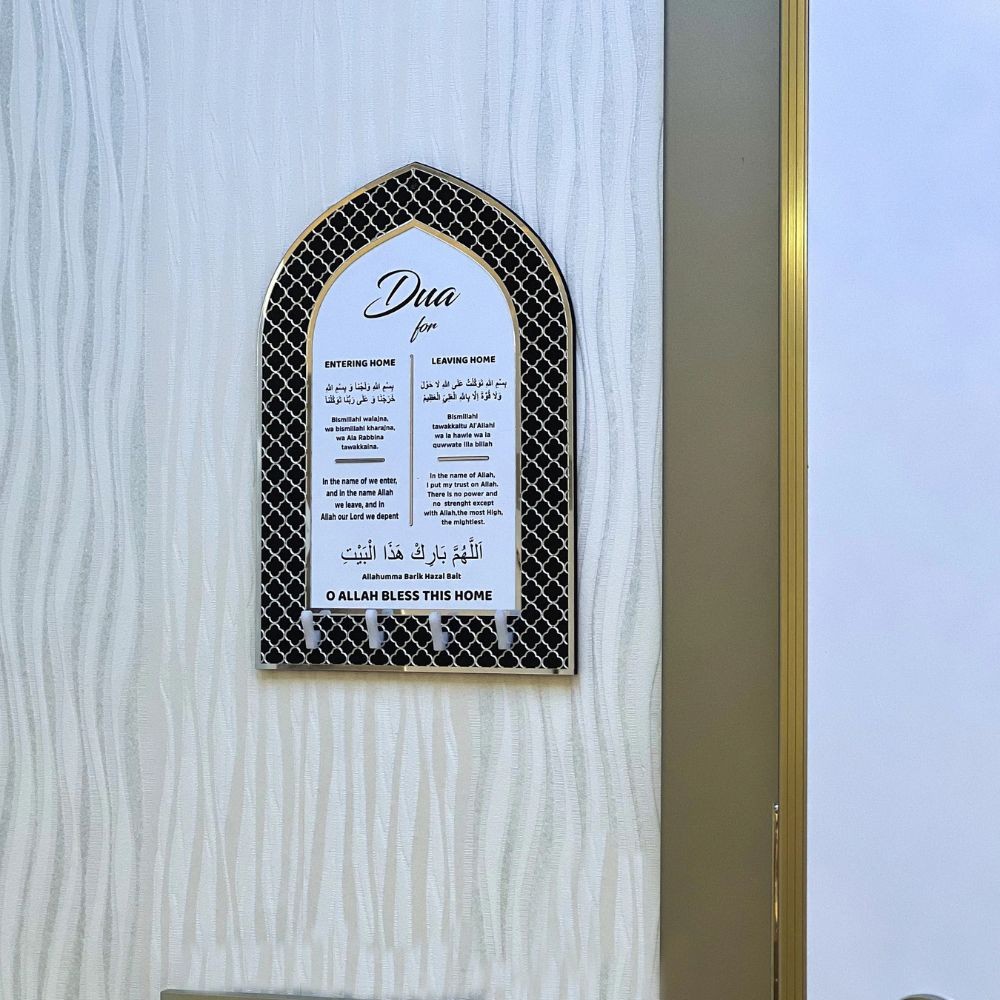 Dua
for
ENTERING HOME
بِسْمِ اللهِ وَلَجْنَا وَ بِسْمِ اللهِ
خَرَجْنَا وَ عَلَى رَبِّنَا تَوَكَّلْنَا
Bismillahi walajna,
wa bismillahi kharajna,
wa Ala Rabbina
tawakkalna.
In the name of we enter,
and in the name Allah
we leave, and in
Allah our Lord we depent
LEAVING HOME
بِسْمِ اللهِ تَوَكَّلْتُ عَلَى اللهِ لَا حَوْلَ
وَلَا قُوَّةَ إِلَّا بِاللهِ الْعَلِيِّ الْعَظِيْمِ
Bismillahi
tawakkaltu Al'Allahi
wa la hawle wa la
quwwate illa billah
In the name of Allah,
I put my trust on Allah.
There is no power and
no strenght except
with Allah,the most High,
the mightiest.
اَللَّهُمَّ بَارِكْ هَذَا الْبَيْتِ
Allahumma Barik Hazal Bait
O ALLAH BLESS THIS HOME